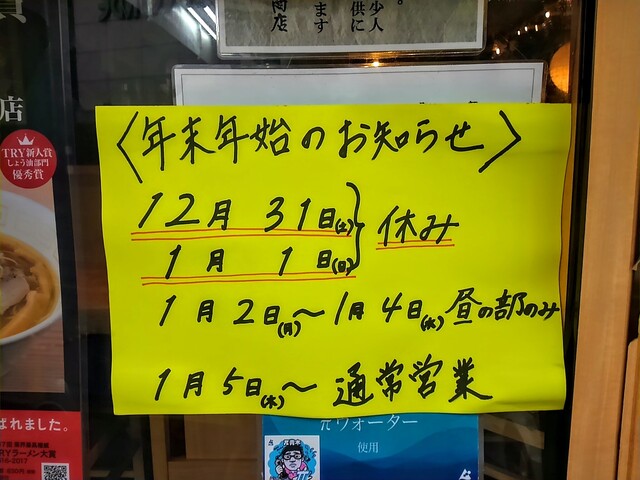 少人
供に
ます
商店
店
TRY新人賞
しょう油部門
優秀賞
〈年末年始のお知らせ〉
12月 31日(土)
1月 1日(日)
休み
1月2日(月)〜1月4日(水)昼の部のみ
1月5日(木)〜 通常営業
πウォーター
使用
ばれました。